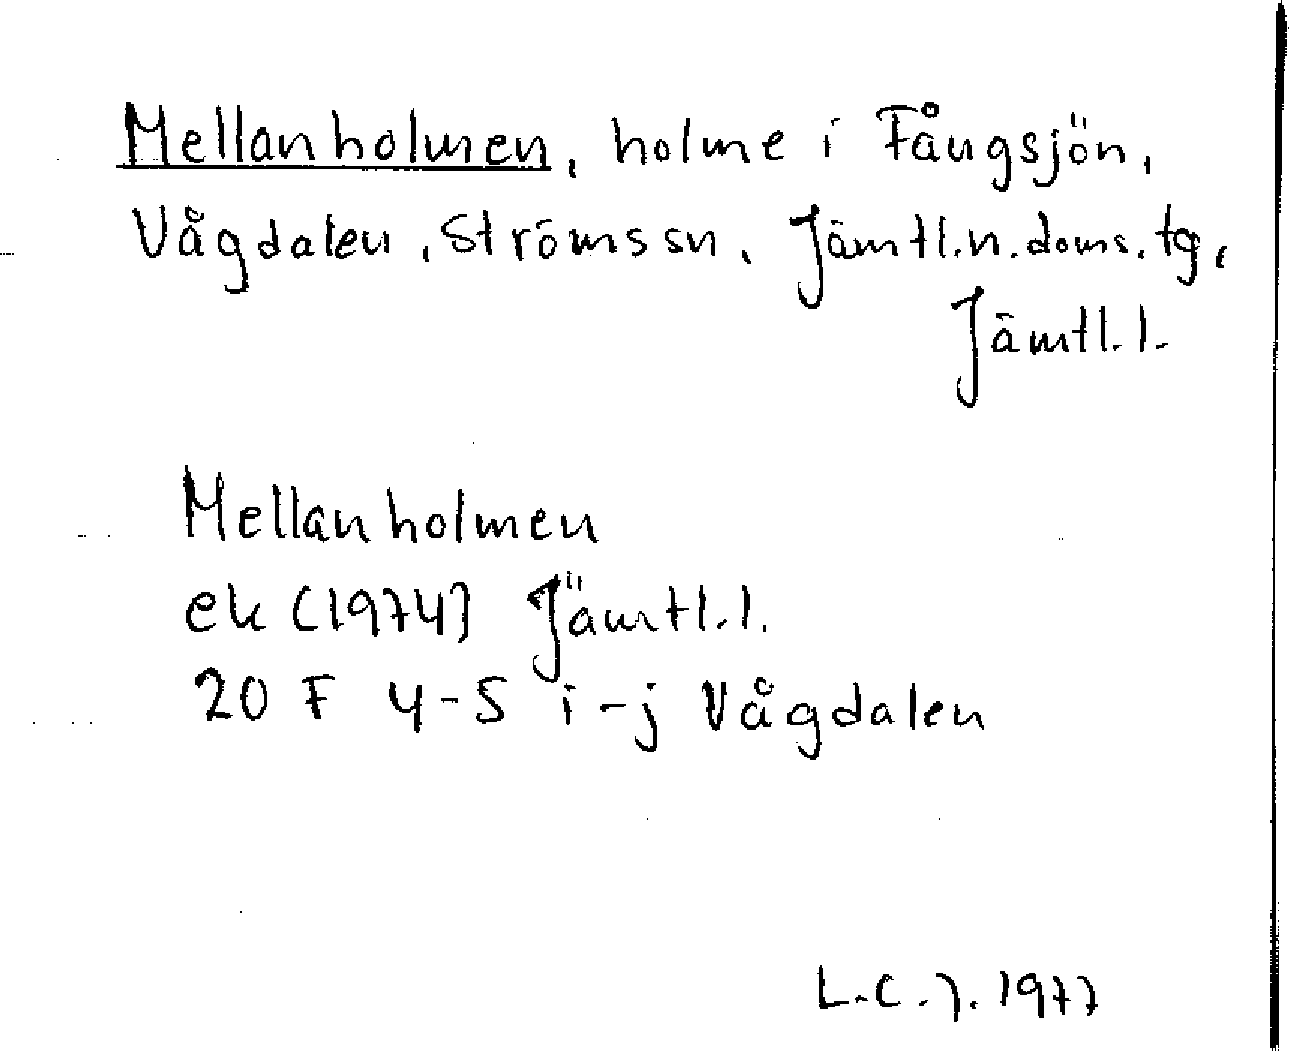 Mellanholmen, holme i Fångsjön,
Vågdalen, Ströms sn, Jämtl.n.doms.tg,
Jämtl.l.
Mellanholmen
ek (1974) Jämtl.l.
20 F 4-5 i-j Vågdalen
L.C.J. 1977